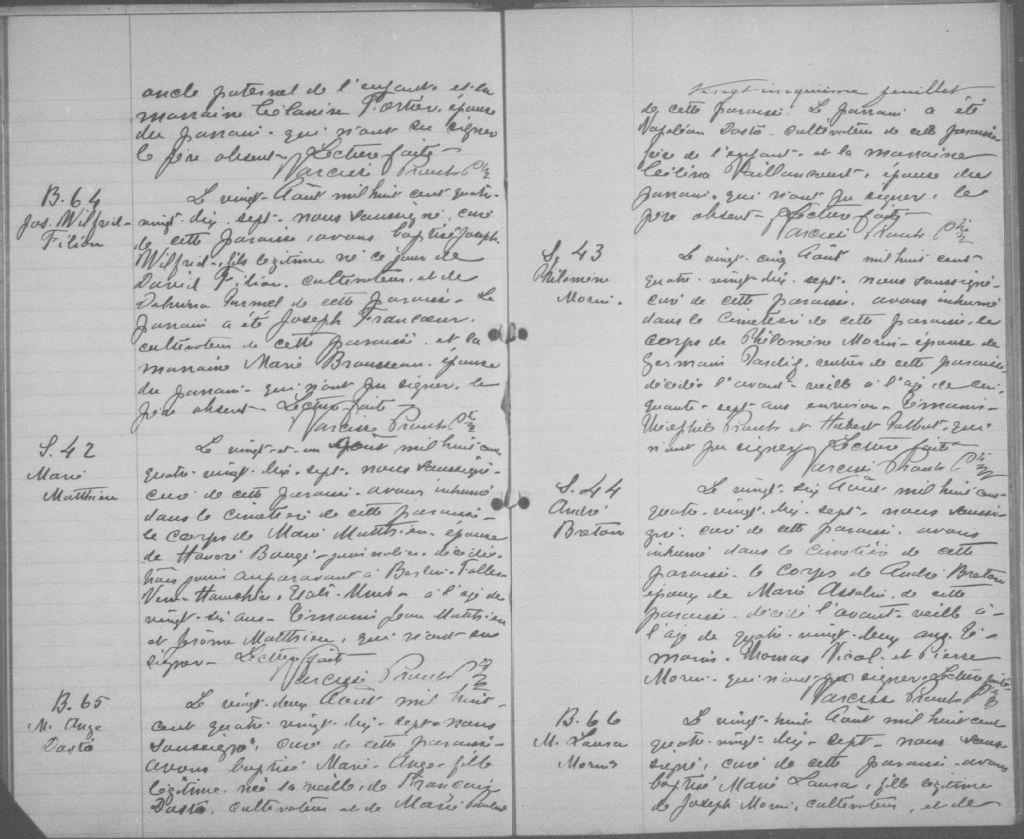 oncle paternel de l'enfant, et la
marraine Célanise Fortier, épouse
du parrain, qui n'ont su signer
le père absent. Lecture faite
Narcisse Proulx Ptre
B. 64
Jos. Wilfred
Filion
Le vingt Août mil huit cent quatre-
vingt-dix-sept, nous soussigné, curé
de cette paroisse, avons baptisé Joseph
Wilfred, fils légitime né ce jour de
David Filion, cultivateur, et de
de cette paroisse. Le
parrain a été Joseph Francoeur,
cultivateur de cette paroisse et la
marraine Marie Brousseau, épouse
du parrain, qui n'ont pu signer, le
père absent. Lecture faite
Narcisse Proulx Ptre
S. 42
Marie
Matthieu
Le vingt-et-un Août mil huit cent
quatre-vingt-dix-sept, nous soussigné
curé de cette paroisse avons inhumé
dans le cimetière de cette paroisse
le corps de Marie Matthieu, épouse
de Honoré journalier, décédée
trois jours auparavant à Berlin-Falls
New-Hampshire, Etats-Unis, à l'age de
vingt-six ans. Témoins Jean Matthieu
et Jérôme Matthieu, qui n'ont su
signer. Lecture faite
Narcisse Proulx Ptre
B. 65
M. Ange
Dostó
Le vingt-deux Août mil huit
cent quatre-vingt-dix-sept nous
soussigné, curé de cette paroisse
avons baptisé Marie-Ange, fille
légitime, née la veille, de François
Dostó, cultivateur et de Marie
juillet
de cette paroisse. Le parrain a été
Napoléon Dostó, cultivateur de cette paroisse
père de l'enfant, et la marraine
Célina Vaillancourt, épouse du
parrain, qui n'ont pu signer, le
père absent. Lecture faite
Narcisse Proulx Ptre
S. 43
Philomène
Morin.
Le vingt-cinq Août mil huit cent
quatre-vingt-dix-sept, nous soussigné
curé de cette paroisse, avons inhumé
dans le cimetière de cette paroisse, le
corps de Philomène Morin, épouse de
Germain rentier de cette paroisse
décédée l'avant-veille à l'age de cin-
quante-sept ans environ. Témoins
Théophile Proulx et Hubert Talbot, qui
n'ont pu signer. Lecture faite
Narcisse Proulx Ptre
S. 44
André
Breton
Le vingt-six Août mil huit cent
quatre-vingt-dix-sept, nous soussi-
gné, curé de cette paroisse, avons
inhumé dans le cimetière de cette
paroisse le corps de André Breton
époux de Marie Asselin, de cette
paroisse, décédé l'avant-veille à
l'age de quatre-vingt-deux ans. Té-
moins. Thomas Nicol et Pierre
Morin, qui n'ont pu signer. Lecture faite
Narcisse Proulx Ptre
B. 66
M. Laura
Morin
Le vingt-huit Août mil huit cent
quatre-vingt-dix-sept, nous sous-
signé, curé de cette paroisse, avons
baptisé Marie Laura, fille légitime
de Joseph Morin, cultivateur, et de